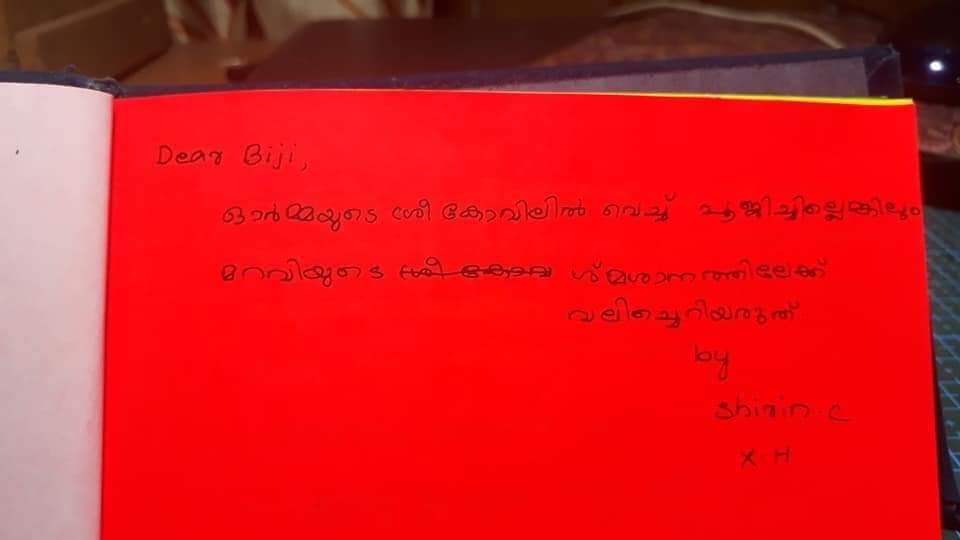 Dear Biji,
ഓർമ്മയുടെ ശ്രീ കോവിലിൽ വെച്ച് പൂജിച്ചില്ലെങ്കിലും
മറവിയുടെ ശ്മശാനത്തിലേക്ക്
വലിച്ചെറിയരുത്
by
Shirin.C
X.H